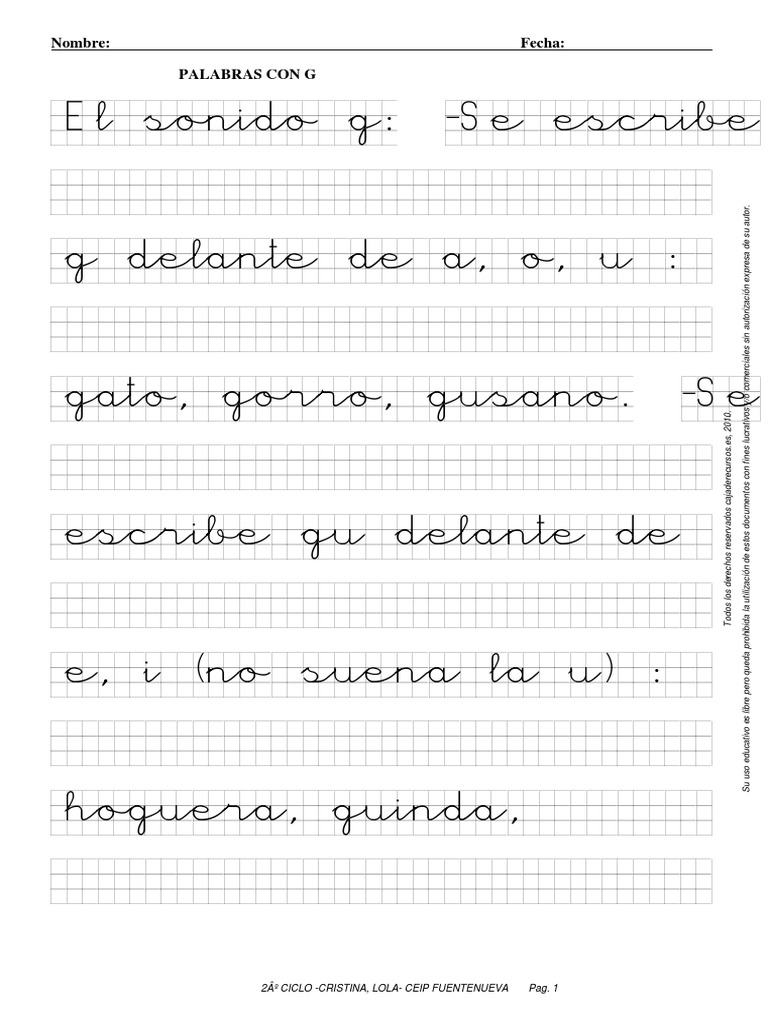 Nombre: Fecha:
PALABRAS CON G
El sonido g: -Se escribe
g delante de a, o, u :
gato, gorro, gusano. -Se
escribe gu delante de
e, i (no suena la u) :
hoguera, guinda,
Todos los derechos reservados cajaderecursos.es, 2010.
Su uso educativo es libre pero queda prohibida la utilización de estos documentos con fines lucrativos y/o comerciales sin autorización expresa de su autor.
2Âº CICLO -CRISTINA, LOLA- CEIP FUENTENUEVA Pag. 1